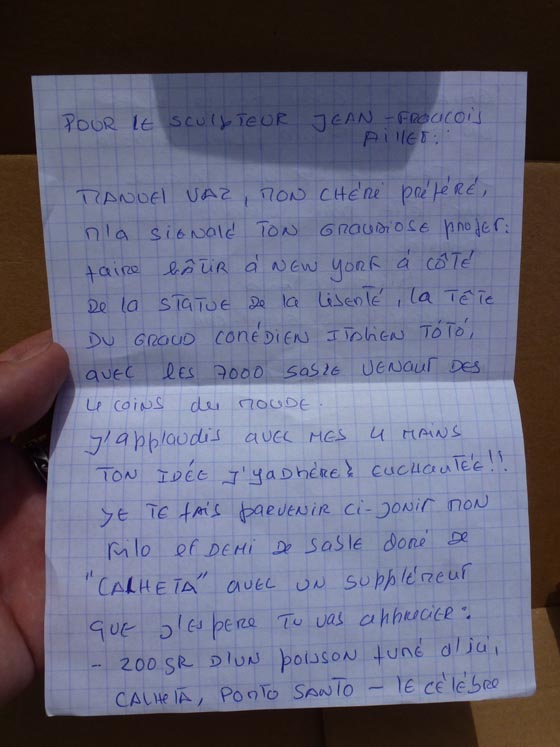 POUR LE SCULPTEUR JEAN-FRANÇOIS
AILLET:
MANUEL VAZ, MON CHÉRI PRÉFÉRÉ,
M'A SIGNALÉ TON GRANDIOSE PROJET:
FAIRE BÂTIR À NEW YORK À CÔTÉ
DE LA STATUE DE LA LIBERTÉ, LA TÊTE
DU GRAND COMÉDIEN ITALIEN TÓTÓ,
AVEC LES 7000 SABLE VENANT DES
4 COINS DU MONDE.
J'APPLAUDIS AVEC MES 4 MAINS
TON IDÉE J'Y ADHÈRE ENCHANTÉE!!
JE TE FAIS PARVENIR CI-JOINT MON
KILO ET DEMI DE SABLE DORÉ DE
"CALHETA" AVEC UN SUPPLÉMENT
QUE J'ESPERE TU VAS APPRECIER:
- 200 GR D'UN POISSON FUMÉ D'ICI,
CALHETA, PORTO SANTO - LE CÉLÈBRE